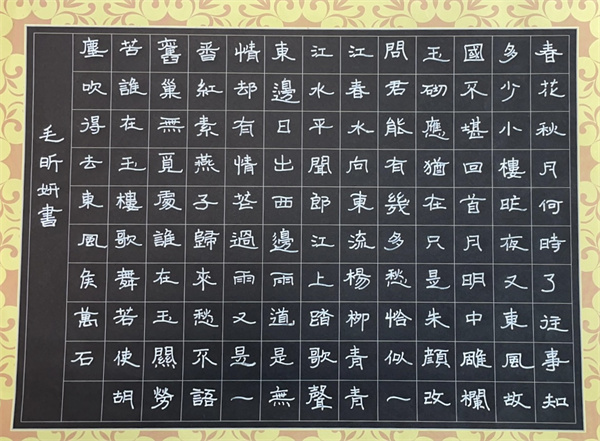 春花秋月何時了往事知
多少小樓昨夜又東風故
國不堪回首月明中雕欄
玉砌應猶在只是朱顏改
問君能有幾多愁恰似一
江春水向東流楊柳青青
江水平聞郎江上踏歌聲
東邊日出西邊雨道是無
情却有情苦過雨又是一
番紅素燕子歸來愁不語
舊巢無覓處誰在玉關勞
苦誰在玉樓歌舞若使胡
塵吹得去東風侯萬石
毛昕妍書